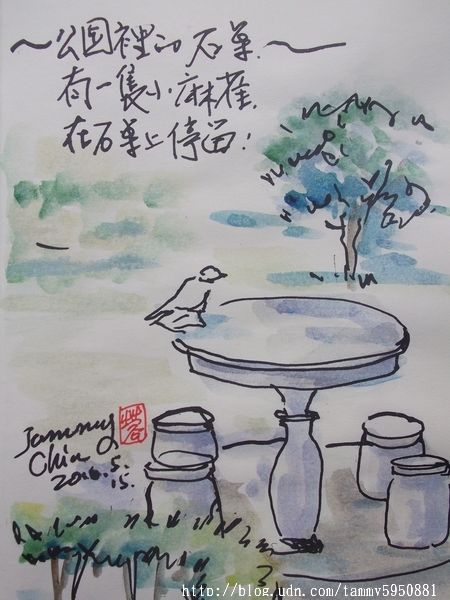 ～公園裡的石桌～
有一隻小麻雀,
在石桌上停留!
Tammy
Chia
2016.5.
15.
http://blog.udn.com/tammy5950881